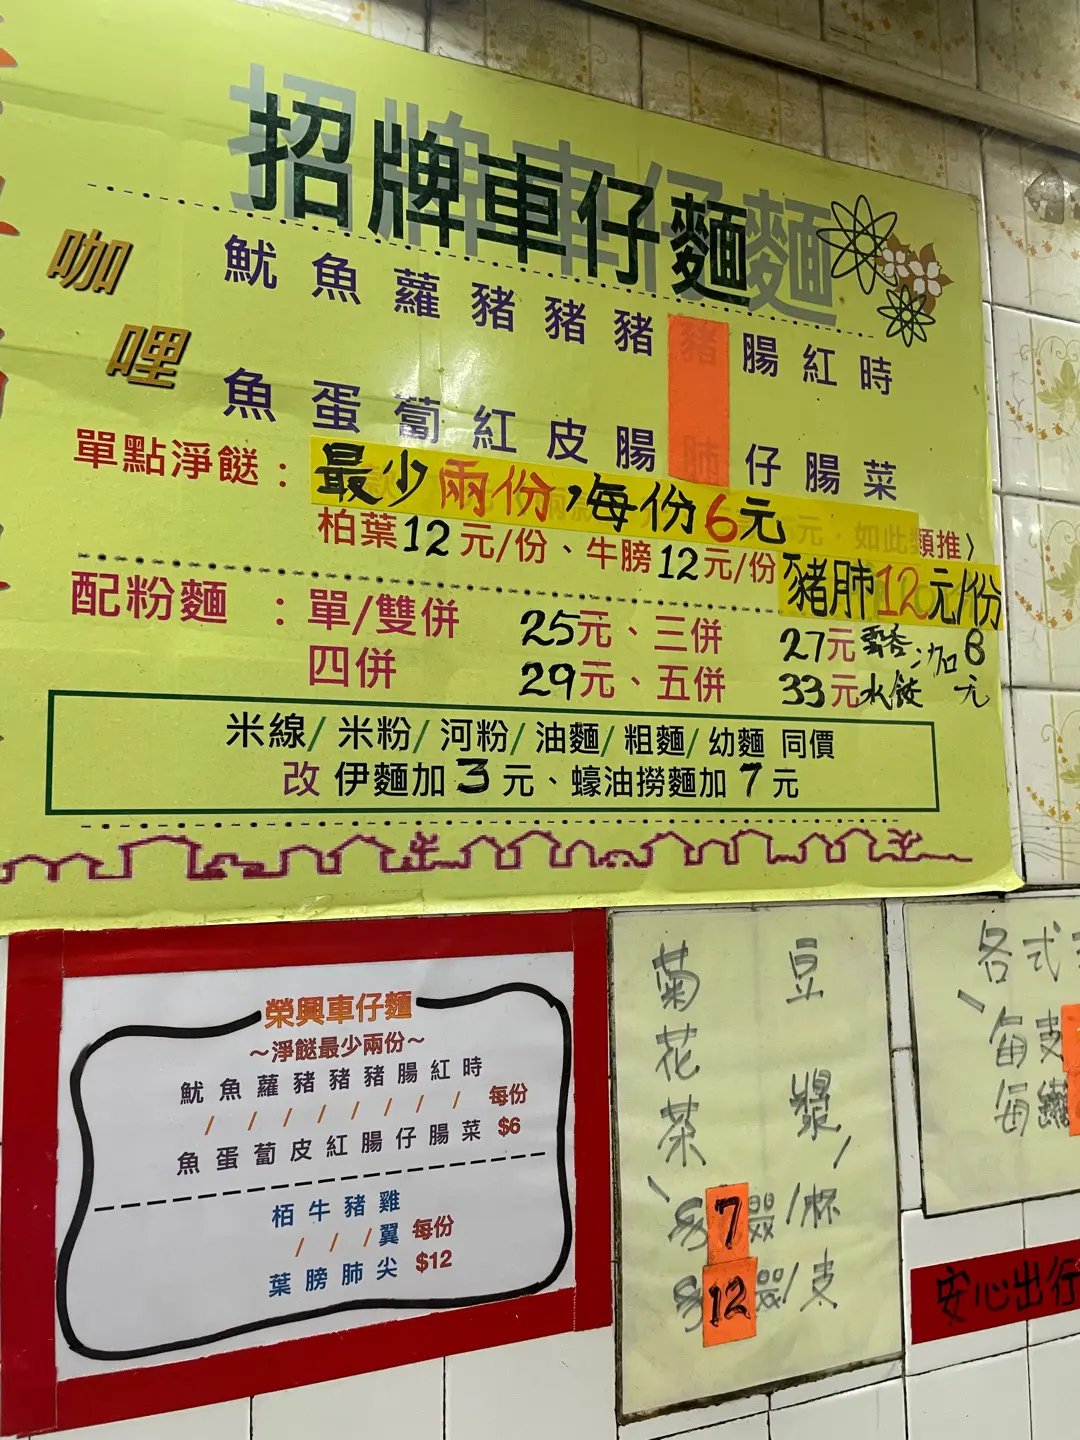 招牌車仔麵
咖哩
魷魚蘿豬豬豬豬腸紅時
魚蛋蔔紅皮腸肺仔腸菜
單點淨餸：最少兩份，每份6元
元，如此類推）
柏葉12元/份、牛膀12元/份 豬肺12元/份
配粉麵：單/雙併 25元、三併 27元
四併 29元、五併 33元
雲吞水餃 加8元
米線/ 米粉/ 河粉/ 油麵/ 粗麵/ 幼麵 同價
改 伊麵加 3 元、蠔油撈麵加 7 元
榮興車仔麵
～淨餸最少兩份～
魷魚蘿豬豬豬腸紅時
/ / / / / / / / 每份
魚蛋蔔皮紅腸仔腸菜 $6
栢牛豬雞
/ / /翼 每份
葉膀肺尖 $12
菊花茶、豆漿/
7/杯
12/支
各式
每支
每罐
安心出行